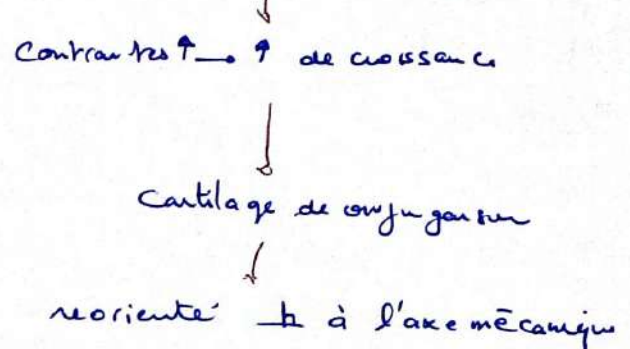 Contraintes ↑ → ↑ de croissance
Cartilage de conjugaison
réorienté ⊥ à l'axe mécanique